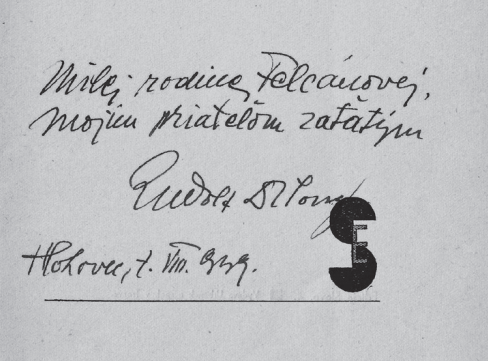 Milej rodine Felcánovej,
mojim priatelom zaťatým
Rudolf Dilong
Hlohovec, 1. VIII. 939.